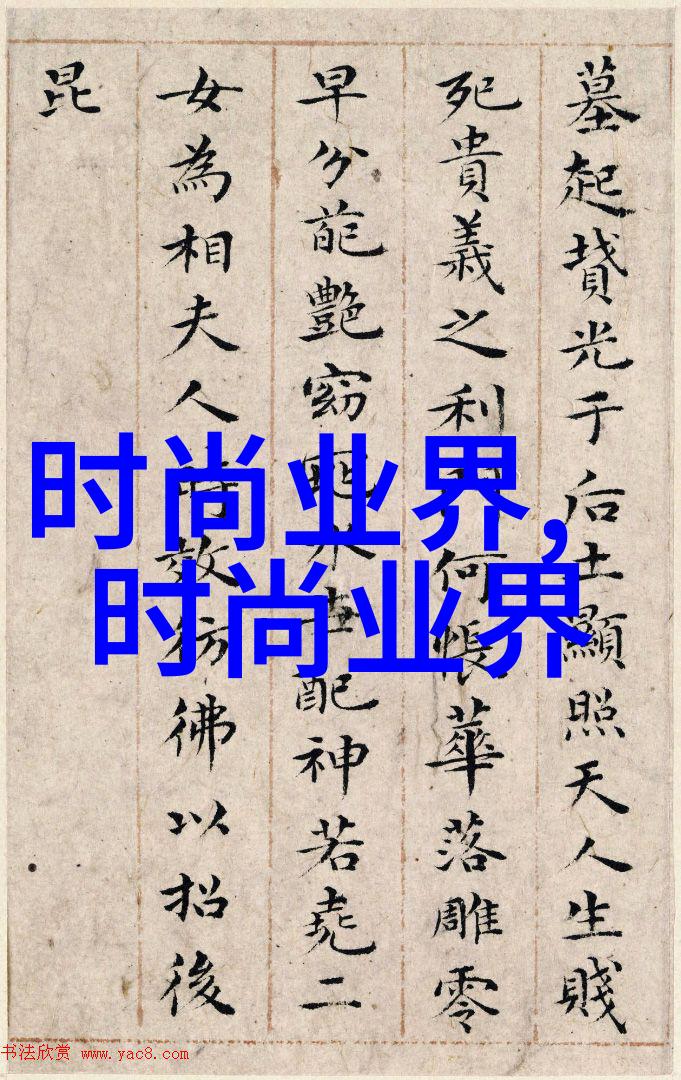 墓起墳光于后土顯照天人生賤
死貴義之利何悵華落雕零
早分葩艷窈永世配神若堯二
女為相夫人效彷彿以招後
昆
时尚业界，
时尚业界
书法欣赏 www.yac8.com